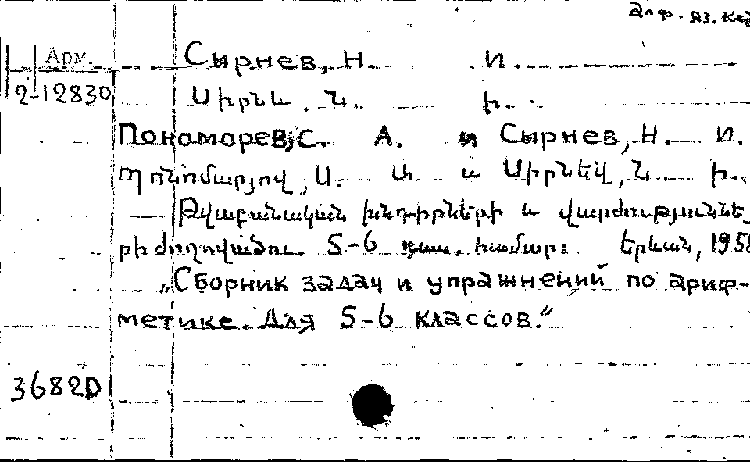 алф. яз. кат
Арм. Сырнев, Н. И.
2-12830 Սիրնև, Ն. Ի.
Пономорев, С. А. и Сырнев, Н. И.
Պոնոմարյով, Ս. Ա. և Սիրնեվ, Ն. Ի.
Թվաբանական խնդիրների և վարժություննե-
րի ժողովածու. 5-6 դաս. համար: Երևան, 1958
„Сборник задач и упражнений по ариф-
метике. Для 5-6 классов.“
3682D